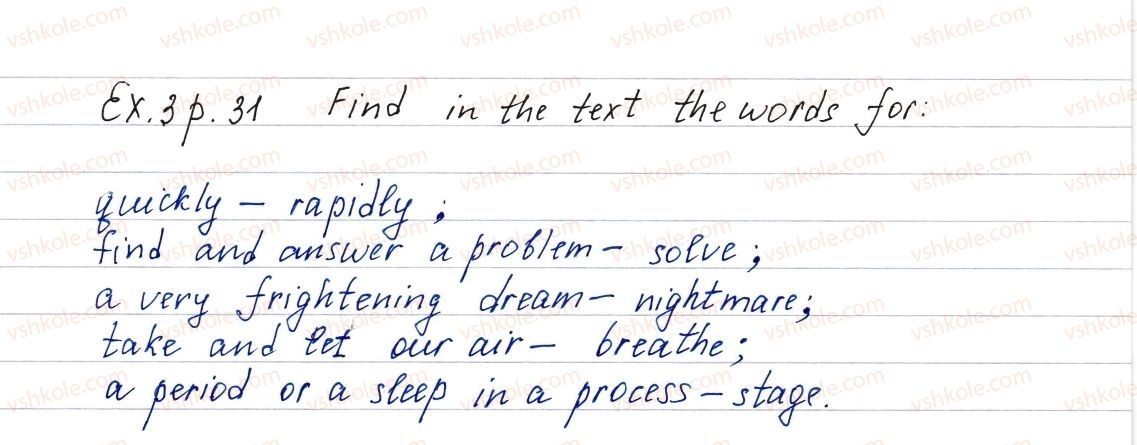 Ex. 3 p. 31 Find in the text the words for:
quickly – rapidly;
find and answer a problem – solve;
a very frightening dream – nightmare;
take and let our air – breathe;
a period or a sleep in a process – stage.